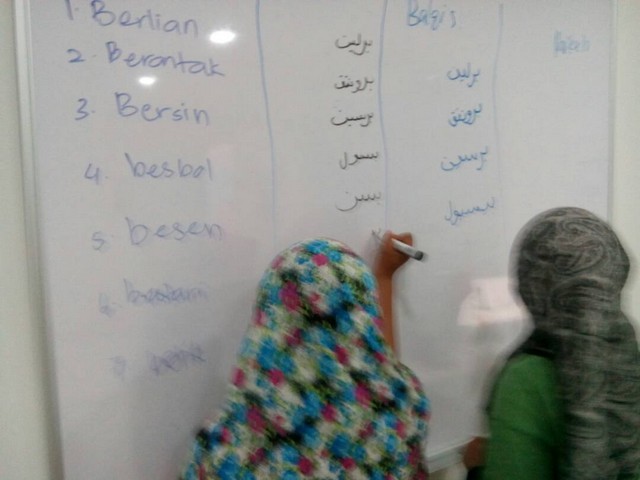 1. Berlian
2. Berontak
3. Bersin
4. besbol
5. besen
برليت
برونتق
برسين
بسبول
بسن
Balqis
برلين
برونتق
برسين
بيسبول